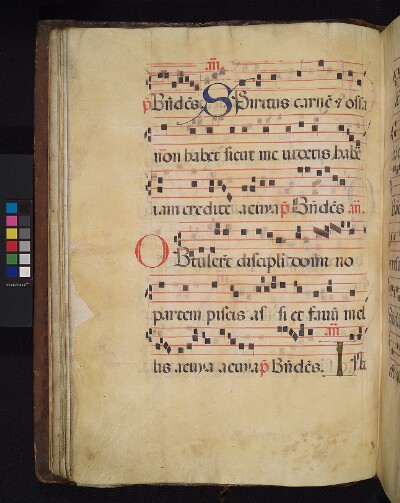 añ.
p̄ Bñdcs̄. Spiritus carnē & ossa
non habet sicut me uidetis habē
iam credite aeuia p̄ Bñdcs̄. añ.
Obtulert̄ discipuli domino
partem piscis assi et fauū mel
añ.
lis aeuia aeuia p̄ Bñdcs̄.